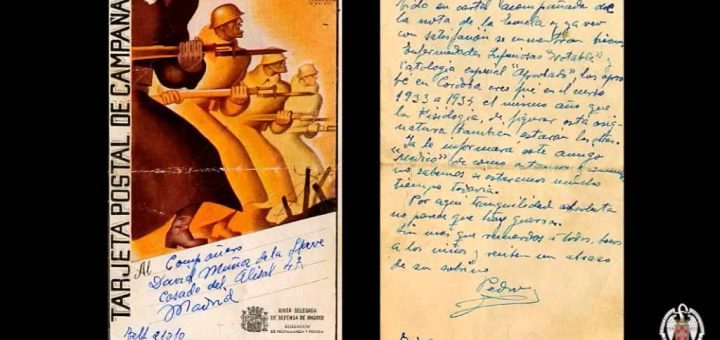 TARJETA POSTAL DE CAMPAÑA
Al Compañero
David Muñoz de la
Casado del Alisal
Madrid
JUNTA DELEGADA
DE DEFENSA DE MADRID
DELEGACION
DE PROPAGANDA Y PRENSA
en carta acompañada de
la nota de la Escuela y ya veo
con satisfacción se encuentran bien,
Enfermedades Infecciosas "Notable" y
Patología especial "Aprobado", las apro
bé en Córdoba creo fué en el curso
1933 a 1934, el mismo año que
la Fisiología, de figurar esta asig-
natura tambien estarán las otras.
Ya le informará este amigo
"Médico", de como estamos
no sabemos si estaremos mucho
tiempo todavía.
Por aquí tranquilidad absoluta
no parece que hay guerra.
Sin mas que recuerdos a todos, besos
a los niños y reciben un abrazo
de su sobrino
Pedro